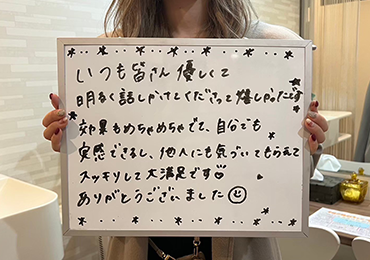 いつも皆さん優しくて
明るく話しかけてくださって嬉しかったです
効果もめちゃめちゃでて、自分でも
実感できるし、他人にも気づいてもらえて
スッキリして大満足です♡
ありがとうございました☺